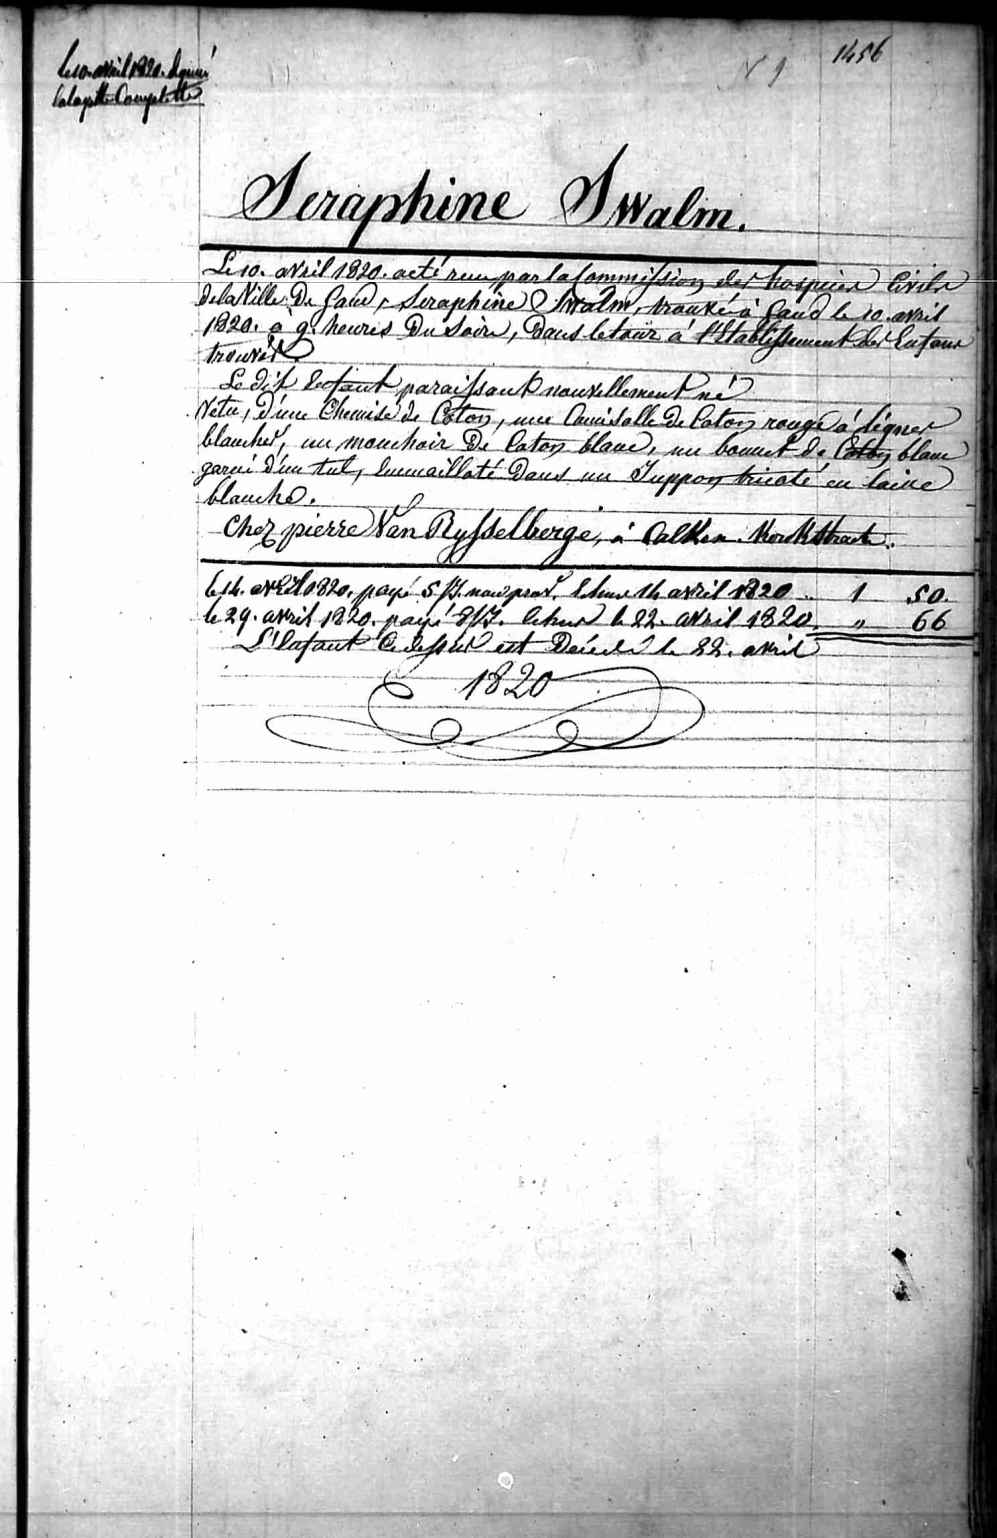 le 10. avril 1820. donné
la layette Complette
N 9
1456
Seraphine Swalm.
Le 10. avril 1820. acté reçu par la Commission des hospices Civils
de la Ville De Gand, Seraphine Swalm, trouvé à Gand le 10. avril
1820. à 9. heures Du Soire, Dans le tour à l'Etablissement des Enfans
trouvés
Le dit Enfant paraissant nouvellement né
Vetu, d'une Chemise de Coton, une Camisolle De Coton rouge à lignes
blanches, un mouchoir De Coton blanc, un bonnet de Coton blanc
garni d'un tul, Emmailloté Dans un Juppon tricoté en laine
blanche.
Chez pierre Van Rysselberge, à Calken
le 14. avril 1820. payé 5 14 avril 1820 .. 1 50
le 29. avril 1820. payé le 22. avril 1820. " 66
L'Enfant Cidessus est Décedé le 22. avril
1820